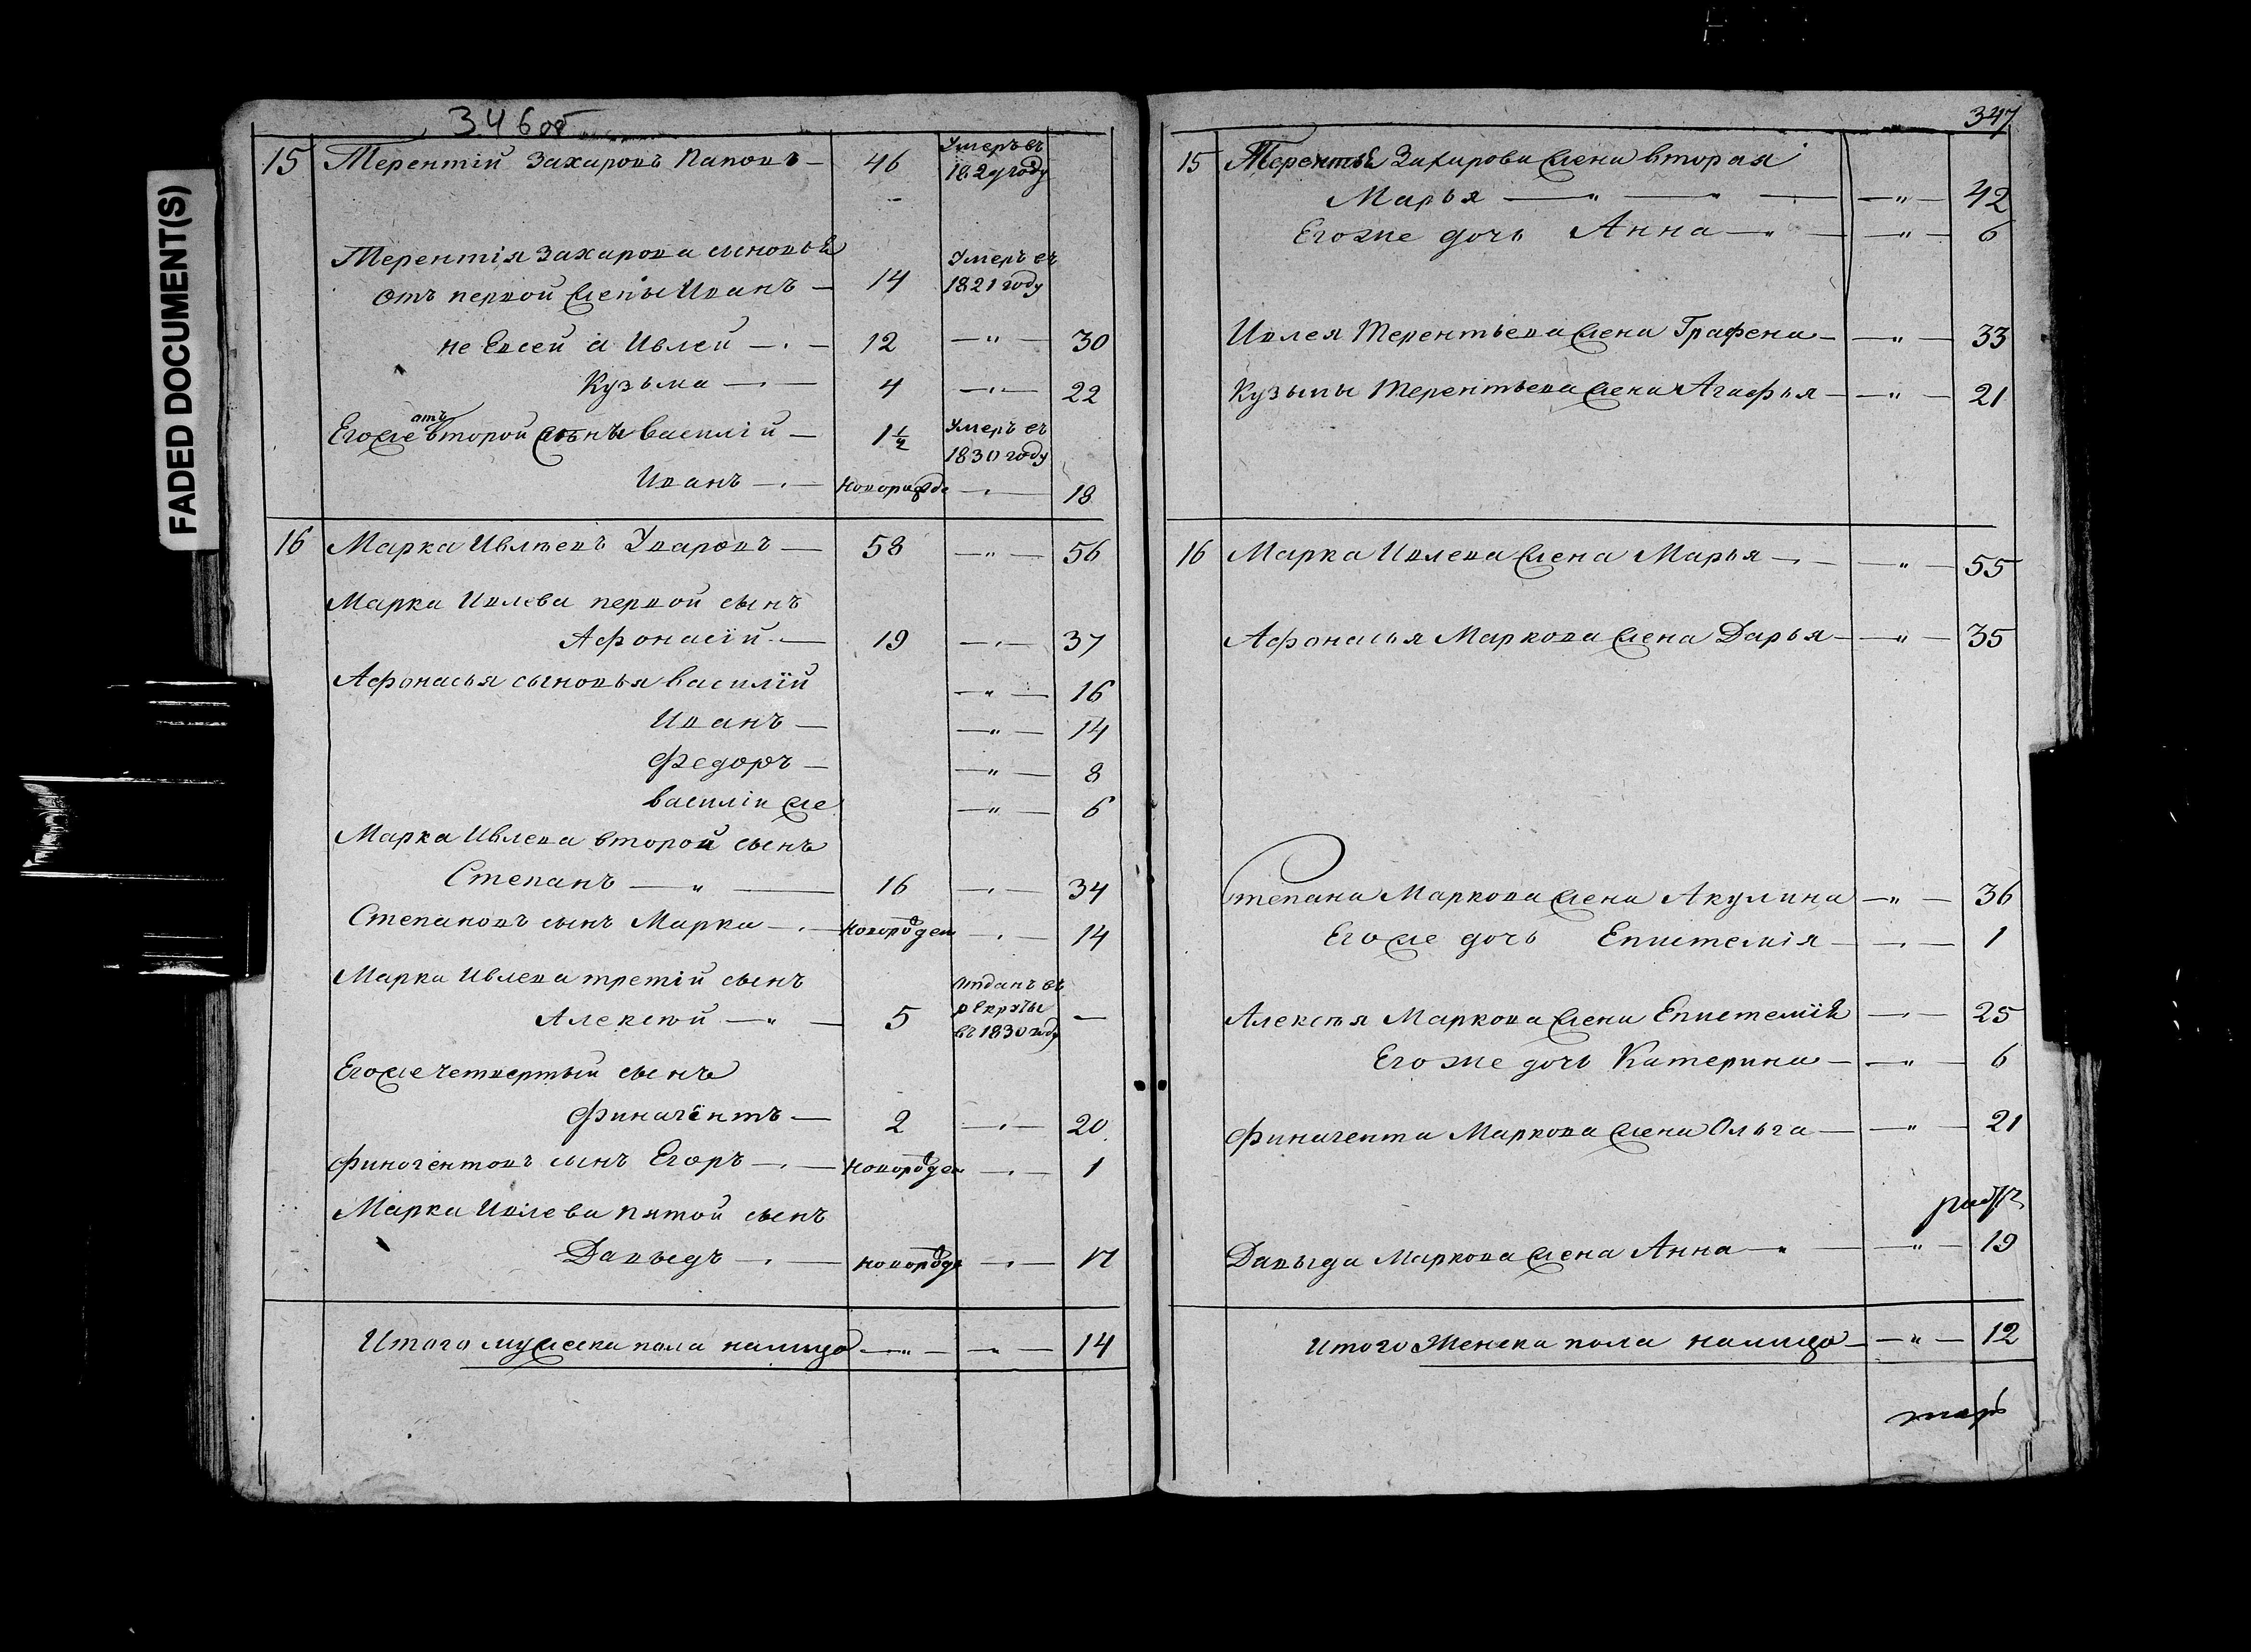 FADED DOCUMENT(S)
346об
15 Терентій Захаровъ Паповъ — 46 Умеръ въ
1829 году
Терентія Захарова сыновья
отъ первой жены Иванъ — 14 Умеръ въ
1821 году
не Евсей а Ивлей — " — 12 — " — 30
Кузьма — " — 4 — " — 22
отъ
Егоже второй жены Василій — 1½ Умеръ въ
1830 году
Иванъ — " — новорожде — " — 18
16 Марка Ивлѣевъ Уваровъ — 58 — " — 56
Марка Ивлева первой сынъ
Афонасій — 19 — " — 37
Афонасья сыновья Василій — " — 16
Иванъ — — " — 14
Федоръ — — " — 8
Василій же — " — 6
Марка Ивлева второй сынъ
Степанъ — " — 16 — " — 34
Степановъ сынъ Марка — " — новорожден — " — 14
Марка Ивлева третій сынъ
Алексѣй — " — 5 отданъ въ
рекруты
въ 1830 году —
Егоже четвертый сынъ
Финагентъ — 2 — " — 20
Финогентовъ сынъ Егоръ — " — новорожден — " — 1
Марка Ивлева пятой сынъ
Давыдъ — " — новорожде — " — 17
Итого мужеска пола налицо — " — — " — 14
347
15 Терентья Захарова жена вторая
Марья — " — " — — " — 42
Егоже дочь Анна — " — — " — 6
Ивлея Терентьева жена Графена — — " — 33
Кузьмы Терентьева жена Агафья — — " — 21
16 Марка Ивлева жена Марья — " — — " — 55
Афонасья Маркова жена Дарья — — " — 35
Степана Маркова жена Акулина — " — 36
Егоже дочь Епистемія — — " — 1
Алексѣя Маркова жена Епистемія — " — 25
Егоже дочь Катерина — — " — 6
Финагента Маркова жена Ольга — — " — 21
Давыда Маркова жена Анна — " — — " — 19
Итого Женска пола налицо — — " — 12